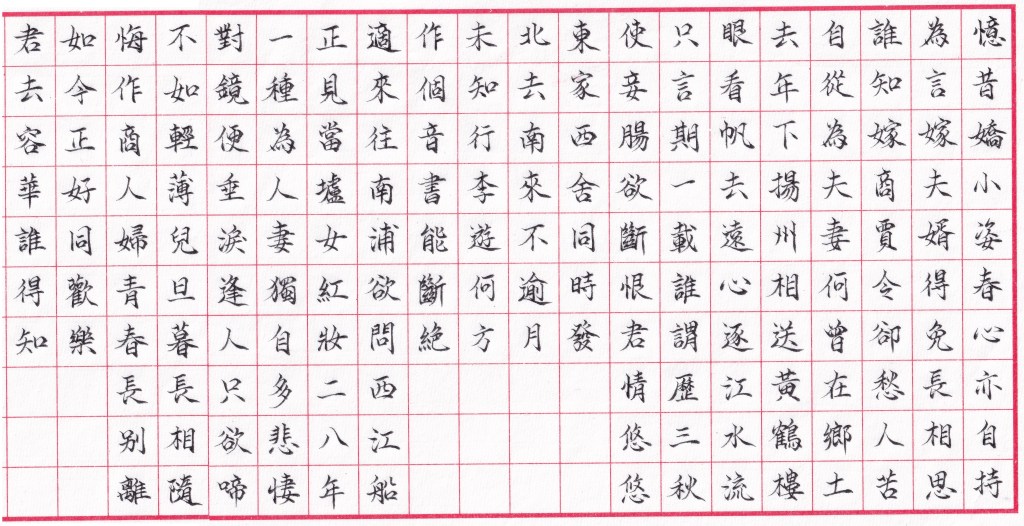 憶昔嬌小姿春心亦自持
為言嫁夫婿得免長相思
誰知嫁商賈令卻愁人苦
自從為夫妻何曾在鄉土
去年下揚州相送黃鶴樓
眼看帆去遠心逐江水流
只言期一載誰謂歷三秋
使妾腸欲斷恨君情悠悠
東家西舍同時發
北去南來不逾月
未知行李遊何方
作個音書能斷絕
適來往南浦欲問西江船
正見當壚女紅妝二八年
一種為人妻獨自多悲悽
對鏡便垂淚逢人只欲啼
不如輕薄兒旦暮長相隨
悔作商人婦青春長别離
如今正好同歡樂
君去容華誰得知